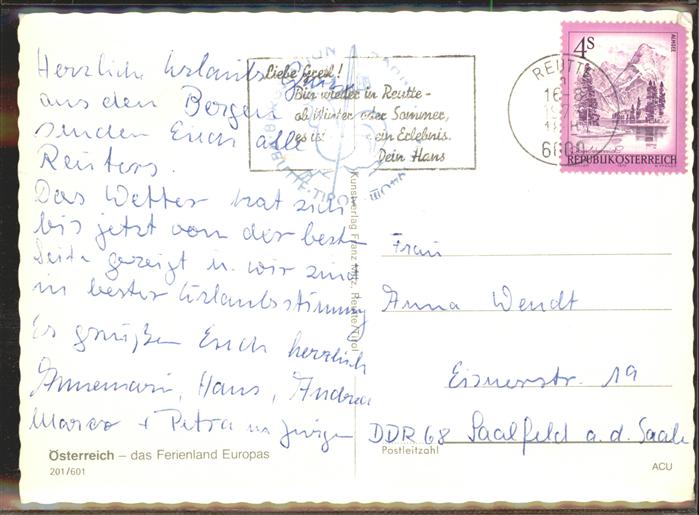 Herzliche Urlaubs Grüße
aus den Bergen
senden Euch alle
Reuters.
Das Wetter hat sich
bis jetzt von der besten
Seite gezeigt u. wir sind
in bester Urlaubsstimmung
Es grüßen Euch herzlich
Annemarie, Hans, Andrea
Marco + Petra u. Jürgen
Österreich – das Ferienland Europas
201/601
Liebe Gretl!
Bin wieder in Reutte -
ob Winter oder Sommer,
es ist ein Erlebnis.
Dein Hans
Kunstverlag Franz Milz, Reutte/Tirol
REUTTE
6600
4S
ALMSEE
REPUBLIK ÖSTERREICH
Frau
Anna Wendt
Eisnerstr. 19
DDR 68 Saalfeld a. d. Saale
Postleitzahl
ACU